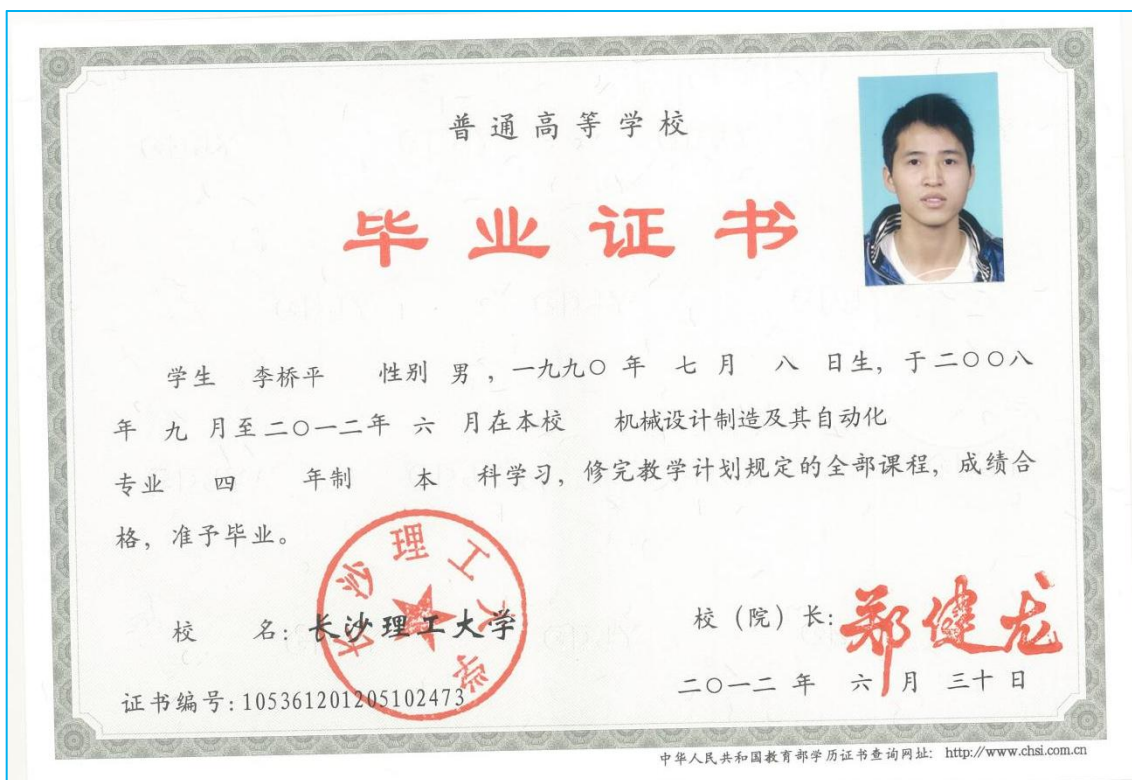 普通高等学校
毕业证书
学生 李桥平 性别 男，一九九〇 年 七 月 八 日生，于二〇〇八
年 九 月至二〇一二年 六 月在本校 机械设计制造及其自动化
专业 四 年制 本 科学习，修完教学计划规定的全部课程，成绩合
格，准予毕业。
长沙理工大学
校 名：长沙理工大学
校（院）长：郑健龙
证书编号：105361201205102473
二〇一二 年 六 月 三十 日
中华人民共和国教育部学历证书查询网址： http://www.chsi.com.cn